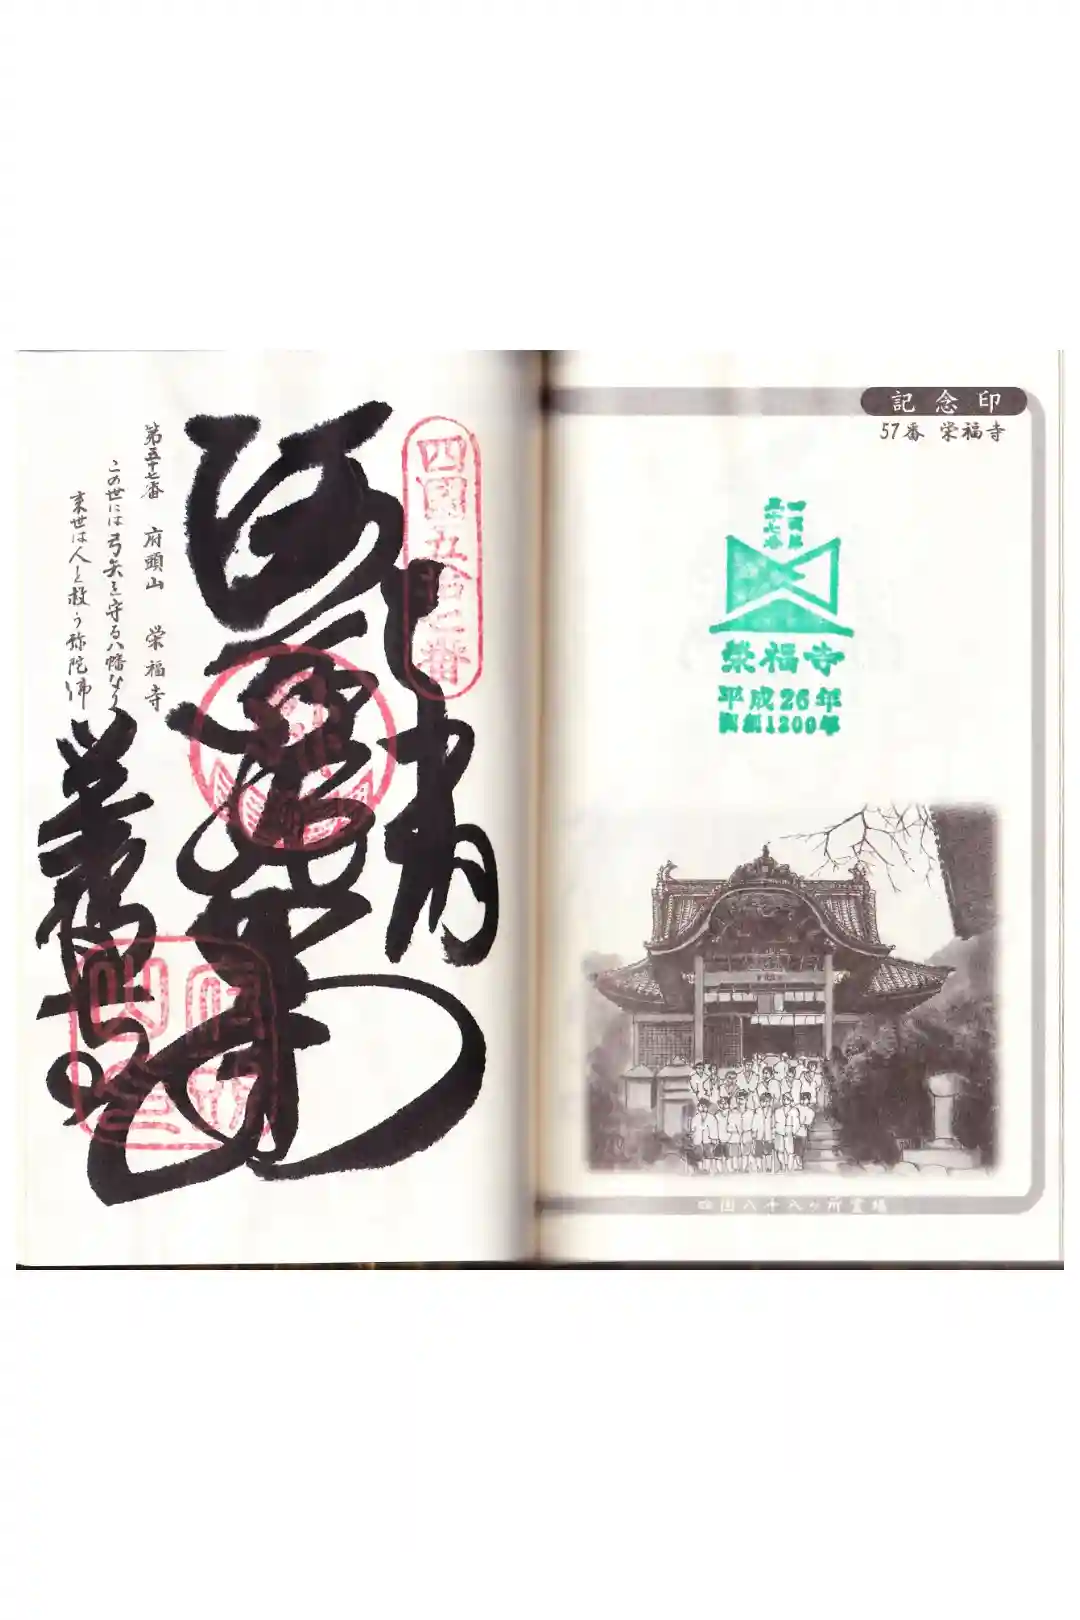 記念印
57番 栄福寺
四国第
五十七番
栄福寺
平成26年
開創1200年
四国八十八ヶ所霊場
四國五拾七番
奉納
阿弥陀如来
栄福寺
第五十七番 府頭山 栄福寺
この世には弓矢を守る八幡なり
来世は人を救う弥陀佛